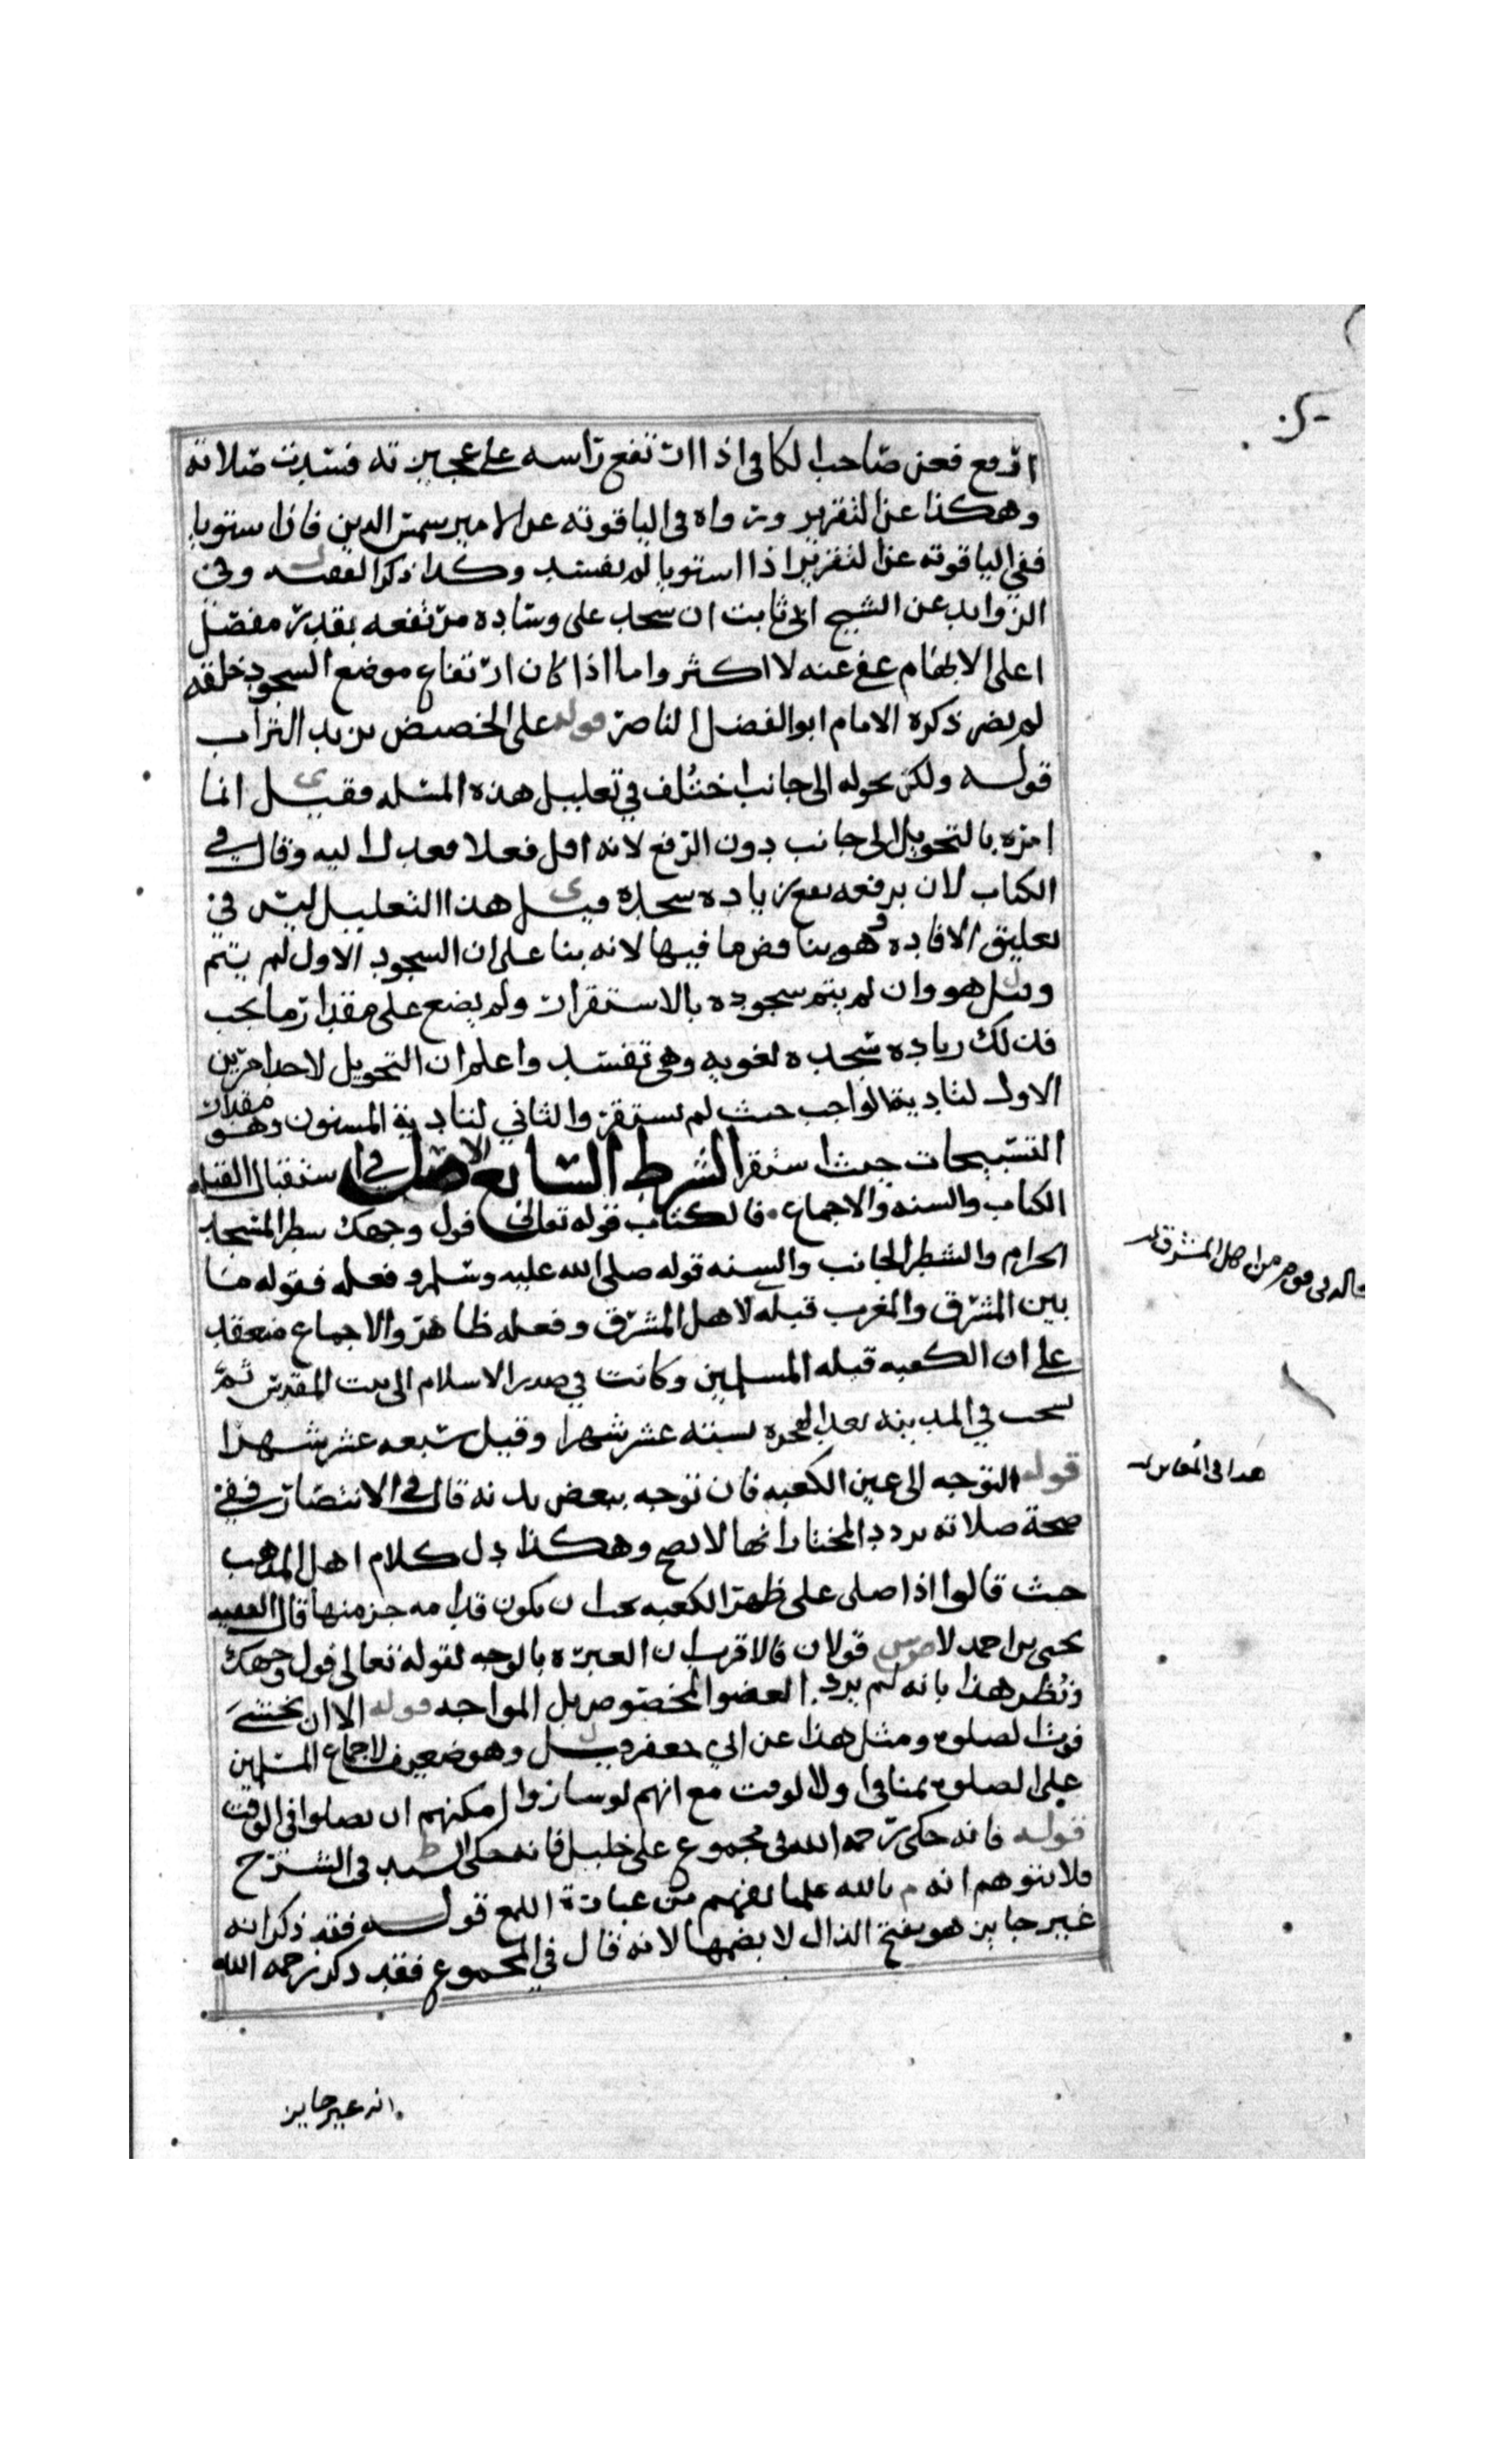 ارفع فعن صاحب الكافي اذا ارتفع راسه على عجيزته فسدت صلاته
وهكذا عن التقرير ورواه في الياقوته عن الامير شمس الدين فاذا استويا
ففي الياقوته عن التقرير اذا استويا لم يفسد وكذا ذكر الفقيه وفي
الزوايد عن الشيخ ابي ثابت ان سجد على وساده مرتفعه بقدر مفصل
اعلى الابهام عفي عنه لا اكثر واما اذا كان ارتفاع موضع السجود خلقه
لم يضر ذكره الامام ابو الفضل الناصر قوله على الحضيض يريد التراب
قوله ولكن يحوله الى جانب اختلف في تعليل هذه المسله فقيل انما
امره بالتحويل الى جانب دون الرفع لانه اقل فعلا فعدل اليه وقال في
الكتاب لان برفعه يقع زياده سجده قيل هذا التعليل ليس في
تعليق الافاده وهو يناقض ما فيها لانه بنا على ان السجود الاول لم يتم
وقيل هو وان لم يتم سجوده بالاستقرار ولم يضع على مقدار ما يجب
فذلك زياده سجده لغويه وهي تفسد واعلم ان التحويل لاحد امرين
الاول لتادية الواجب حيث لم يستقر والثاني لتادية المسنون وهو مقدار
التسبيحات حيث استقر الشرط السابع الاصل في استقبال القبله
الكتاب والسنه والاجماع فالكتاب قوله تعالى فول وجهك شطر المسجد
الحرام والشطر الجانب والسنه قوله صلى الله عليه وسلم وفعله فقوله ما
بين المشرق والمغرب قبله لاهل المشرق وفعله ظاهر والاجماع منعقد
على ان الكعبه قبله المسلمين وكانت في صدر الاسلام الى بيت المقدس ثم
نسخت في المدينه بعد الهجره بستة عشر شهرا وقيل سبعه عشر شهرا
قوله التوجه الى عين الكعبه فان توجه ببعض بدنه قال في الانتصار ففي
صحة صلاته تردد المختار انها لا تصح وهكذا دل كلام اهل المذهب
حيث قالوا اذا صلى على ظهر الكعبه يجب ان يكون قدامه جز منها قال الفقيه
يحيى بن احمد قولان فالاقرب ان العبره بالوجه لقوله تعالى فول وجهك
ونظر هذا بانه لم يرد العضو المخصوص بل المواجه قوله الا ان يخشى
فوت الصلوه ومثل هذا عن ابي جعفر قيل وهو ضعيف لاجماع المسلمين
على الصلوه بمنا في اول الوقت مع انهم لو ساروا لامكنهم ان يصلوا في الوقت
قوله فانه حكى رحمه الله في مجموع علي خليل فانه حكى السيد في الشرح
فلا يتوهم انه م بالله على ما يفهم من عبارة اللمع قوله فقد ذكر انه
غير جايز هو بفتح الذال لا بضمها لانه قال في المجموع فقد ذكر رحمه الله
انه غير جايز
من اهل المشرق
هذا في